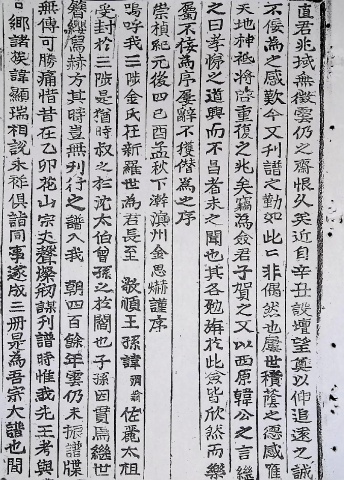 直君兆域無徵雲仍之齋恨久矣近自辛丑設壇望奠以伸追遠之誠
不佞爲之感歎今又刊譜之勤如此非偶然也屢世積蔭之德感
天地神祗將啓重復之兆矣竊爲僉君子賀之又以西原韓公之言繼
之曰孝悌之道興而不昌者未之聞也其各勉旃於此僉皆欣然而樂
屬不佞爲序屢辭不獲僭爲之序
崇禎紀元後四己酉孟秋下澣瀛州金思爀謹序
嗚呼我三陟金氏在新羅世爲君長至 敬順王孫諱 佐麗太祖
受封於三陟是猶時叔之於沈太伯曾孫之於閻也子孫因貫焉繼世
簪纓舃赫方其時豈無刊行之譜入我 朝四百餘年雲仍未振譜牒
無傳可勝痛惜昔在乙卯花山宗丈聲燦刱謀刊譜時惟我先王考與
鄕諸族諱顯瑞相說永祚俱詣同事遂成三冊是爲吾宗大譜也間